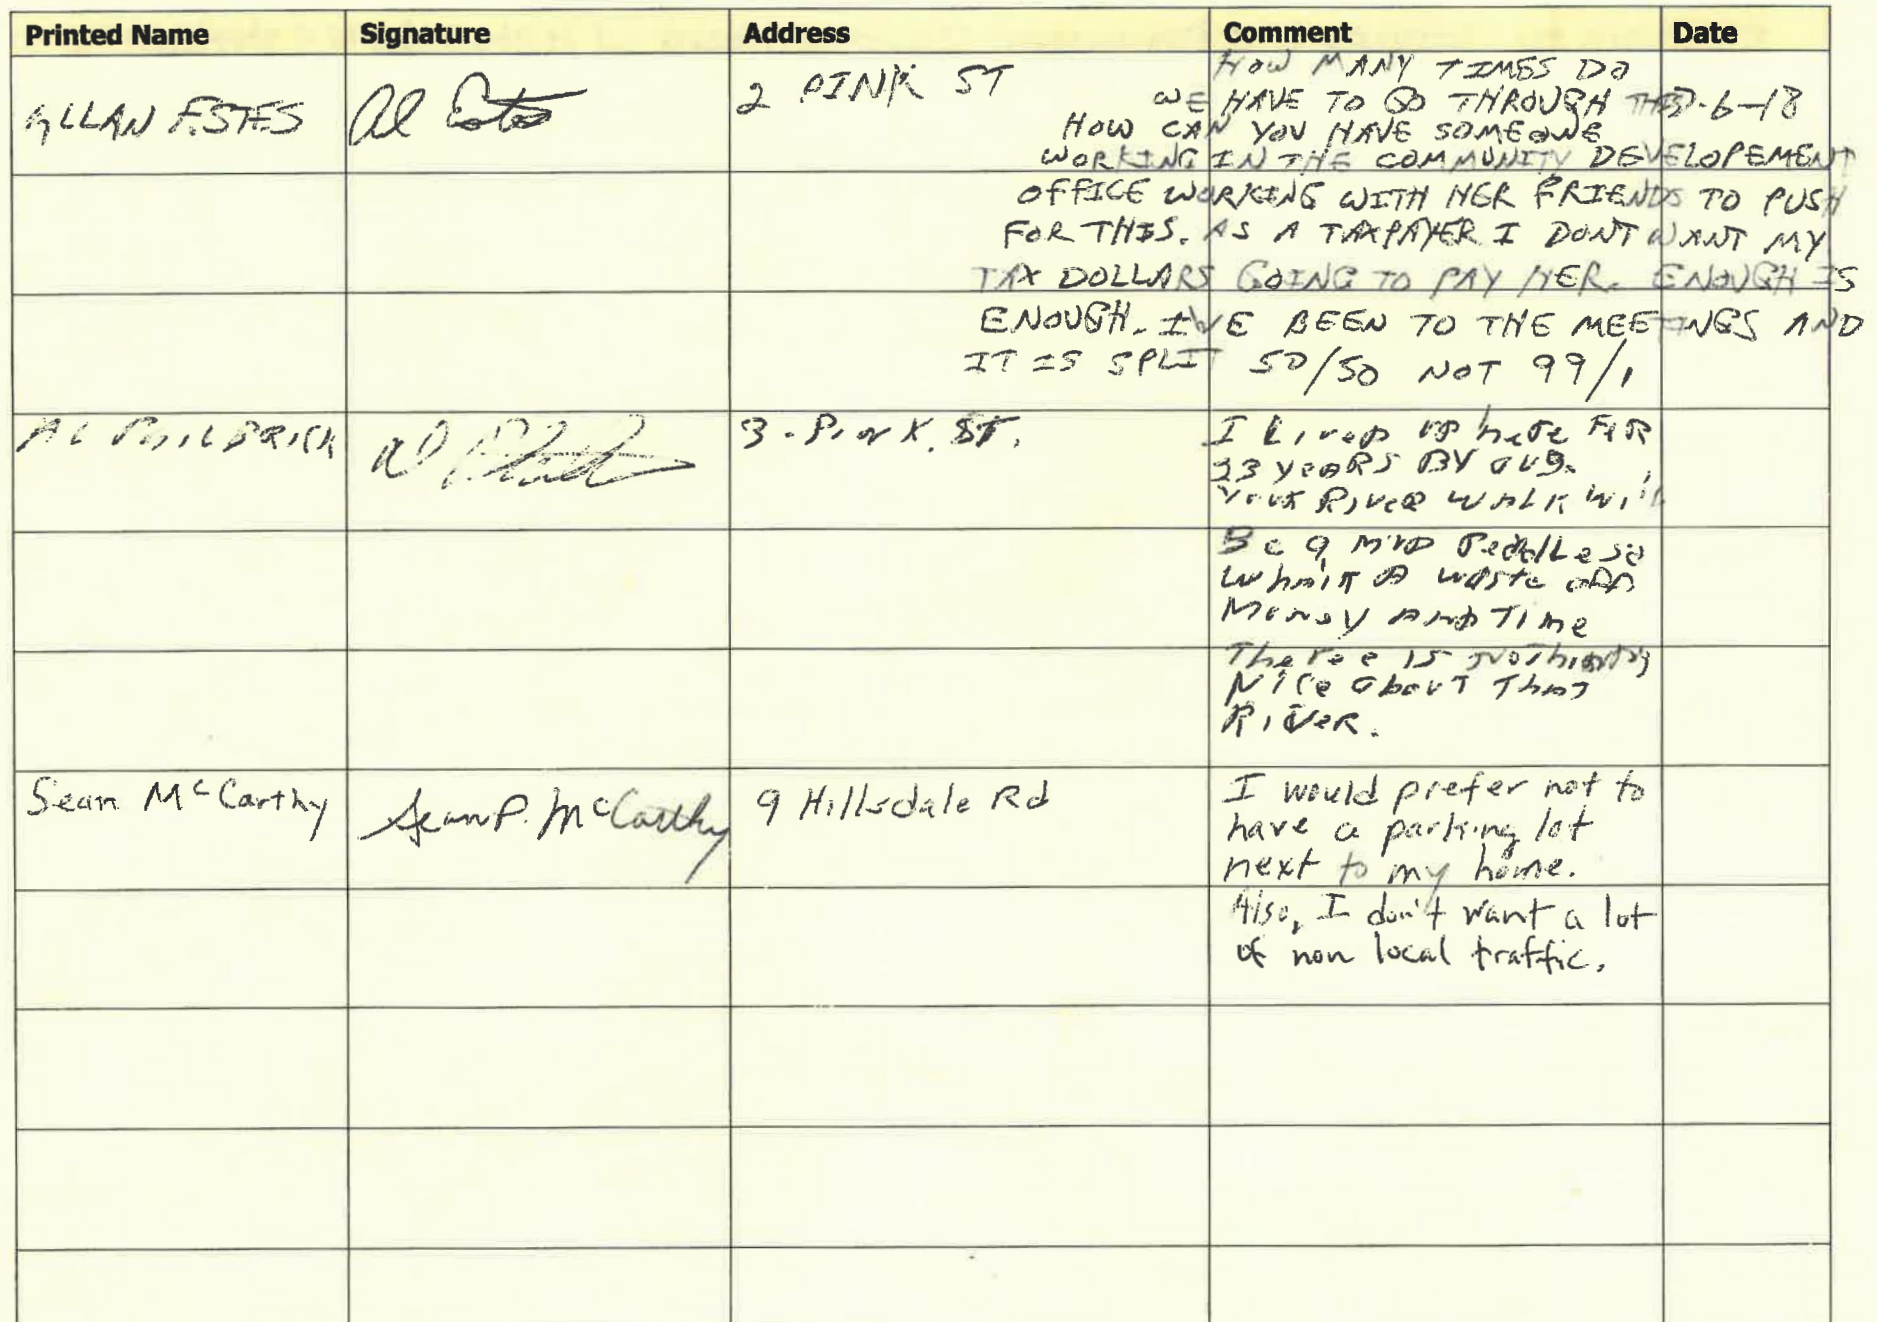 Printed Name Signature Address Comment Date
ALLAN ESTES Al Estes 2 PINK ST
HOW MANY TIMES DO
WE HAVE TO GO THROUGH THIS 7-6-18
HOW CAN YOU HAVE SOMEONE
WORKING IN THE COMMUNITY DEVELOPEMENT
OFFICE WORKING WITH HER FRIENDS TO PUSH
FOR THIS. AS A TAXPAYER I DONT WANT MY
TAX DOLLARS GOING TO PAY HER. ENOUGH IS
ENOUGH. I'VE BEEN TO THE MEETINGS AND
IT IS SPLIT 50/50 NOT 99/1
AL PHILBRICK 3 - Pink. ST.
I Lived up here FOR
33 years BY aug.
Your River Walk will
Be a
what A waste off
Money And Time
There is Nothing
Nice about That
River.
Sean McCarthy Sean P. McCarthy 9 Hillsdale Rd
I would prefer not to
have a parking lot
next to my home.
Also, I don't want a lot
of non local traffic.